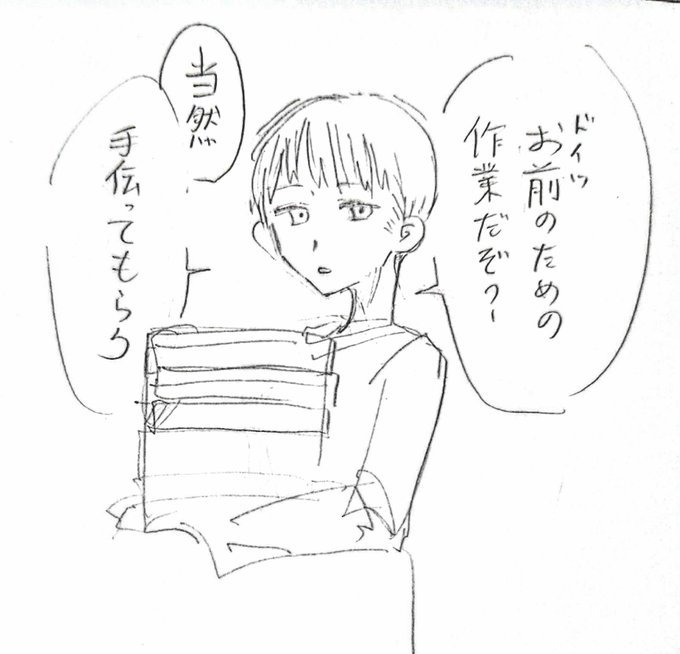 ドイツ
お前のための
作業だぞ?
当然
手伝ってもらう